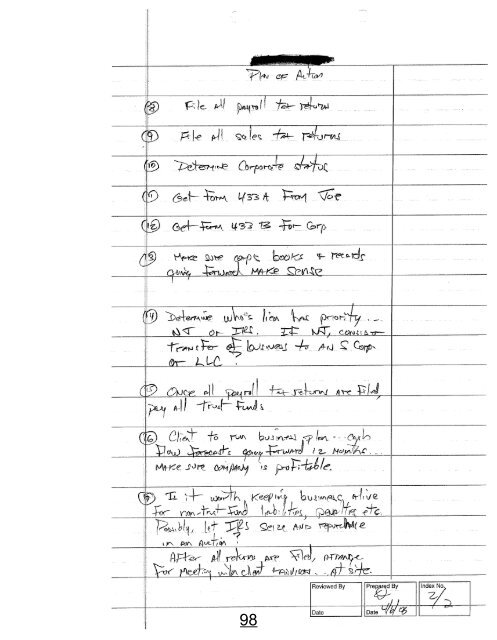 Plan of Action
(8) File all payroll tax returns
(9) File all sales tax returns
(10) Determine Corporate status
(11) Get Form 433A From Joe
(12) Get Form 433 B For Corp
(13) Make sure corps books & records
going forward MAKE SENSE
(14) Determine who's lien has priority...
NJ or IRS. IF NJ, consider
transfer of business to AN S Corp.
or LLC?
(15) Once all payroll tax returns are Filed,
pay all trust funds
(16) Client to run business plan... cash
Flow Forecasts going forward 12 months...
MAKE sure company is profitable.
(17) Is it worth keeping business alive
for non-trust fund liabilities, penalties etc.
Possibly, let IRS seize and repurchase
in an auction?
After all returns are Filed, arrange
For meeting with client ... At site.
Reviewed By
Prepared By
Index No.
2/2
Date
Date 4/6/98
98